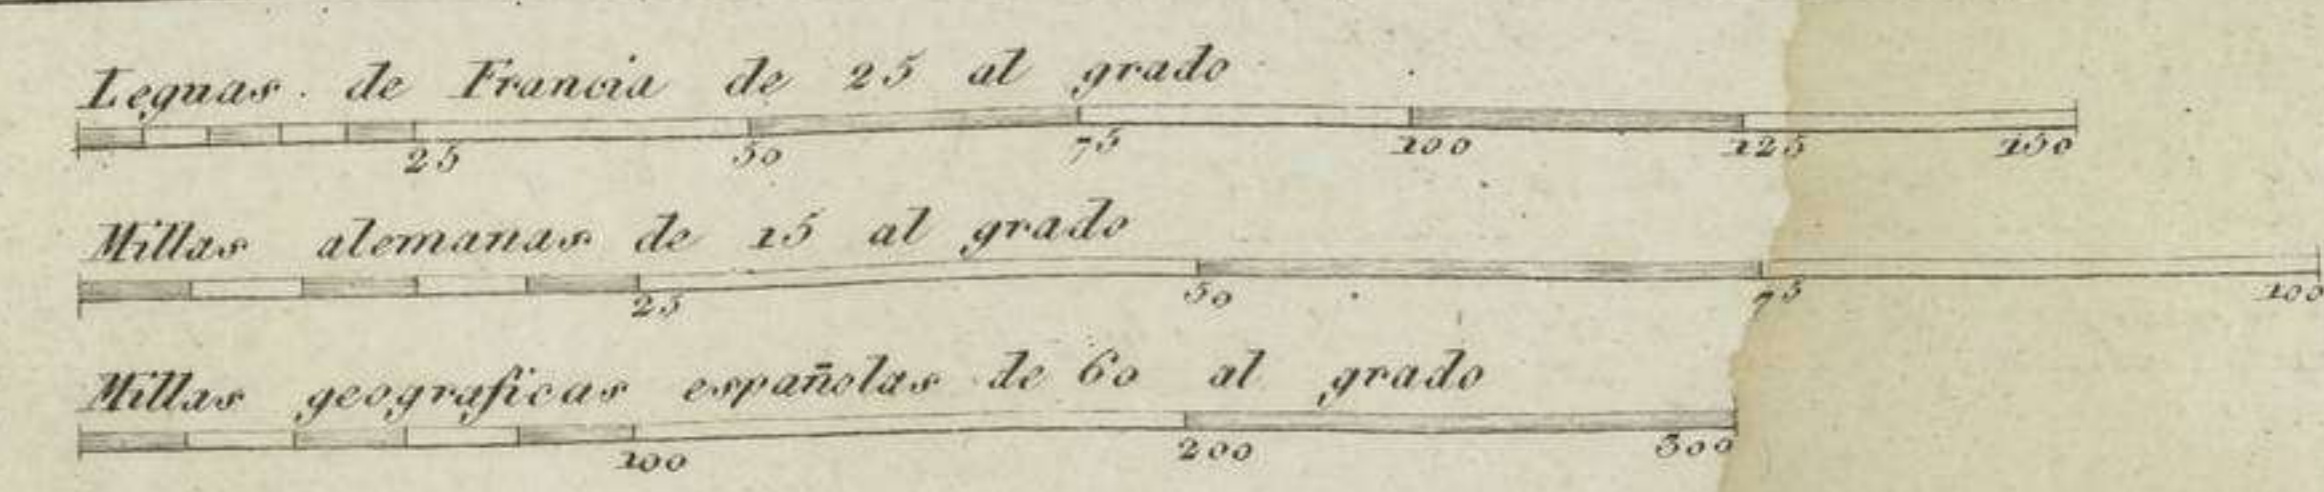 Leguas de Francia de 25 al grado
25 50 75 100 125 150
Millas alemanas de 15 al grado
25 50 75 100
Millas geograficas españolas de 60 al grado
100 200 300